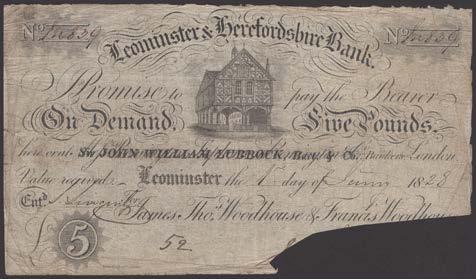 Leominster & Herefordshire Bank.
I Promise to pay the Bearer
On Demand, Five Pounds.
here or at Sir JOHN WILLIAM LUBBOCK, Bart. & Co. Bankers London
Value received. Leominster the day of 1828
Entd. For James Thos. Woodhouse & Francis Woodhouse
£ 5
52